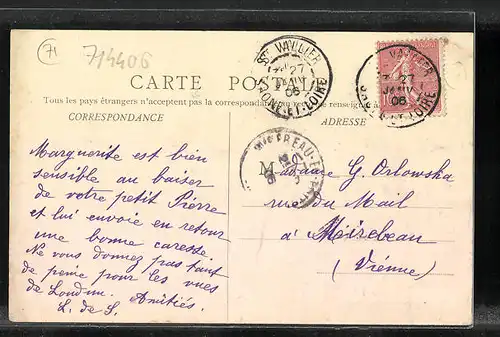 71
714406
CARTE POSTALE
Tous les pays étrangers n'acceptent pas la correspondance au recto se renseigner à
CORRESPONDANCE
ADRESSE
ST VALLIER
27
JANV
06
SAONE-ET-LOIRE
VALLIER
27
JANV
06
SAONE-ET-LOIRE
MIREBEAU
Marguerite est bien
sensible au baiser
de votre petit Pierre
et lui envoie en retour
une bonne caresse
Ne vous donnez pas tant
de peine pour les vues
de Loudun. Amitiés.
L. de S.
Madame G. Orlowska
rue du Mail
à Mirebeau
(Vienne)